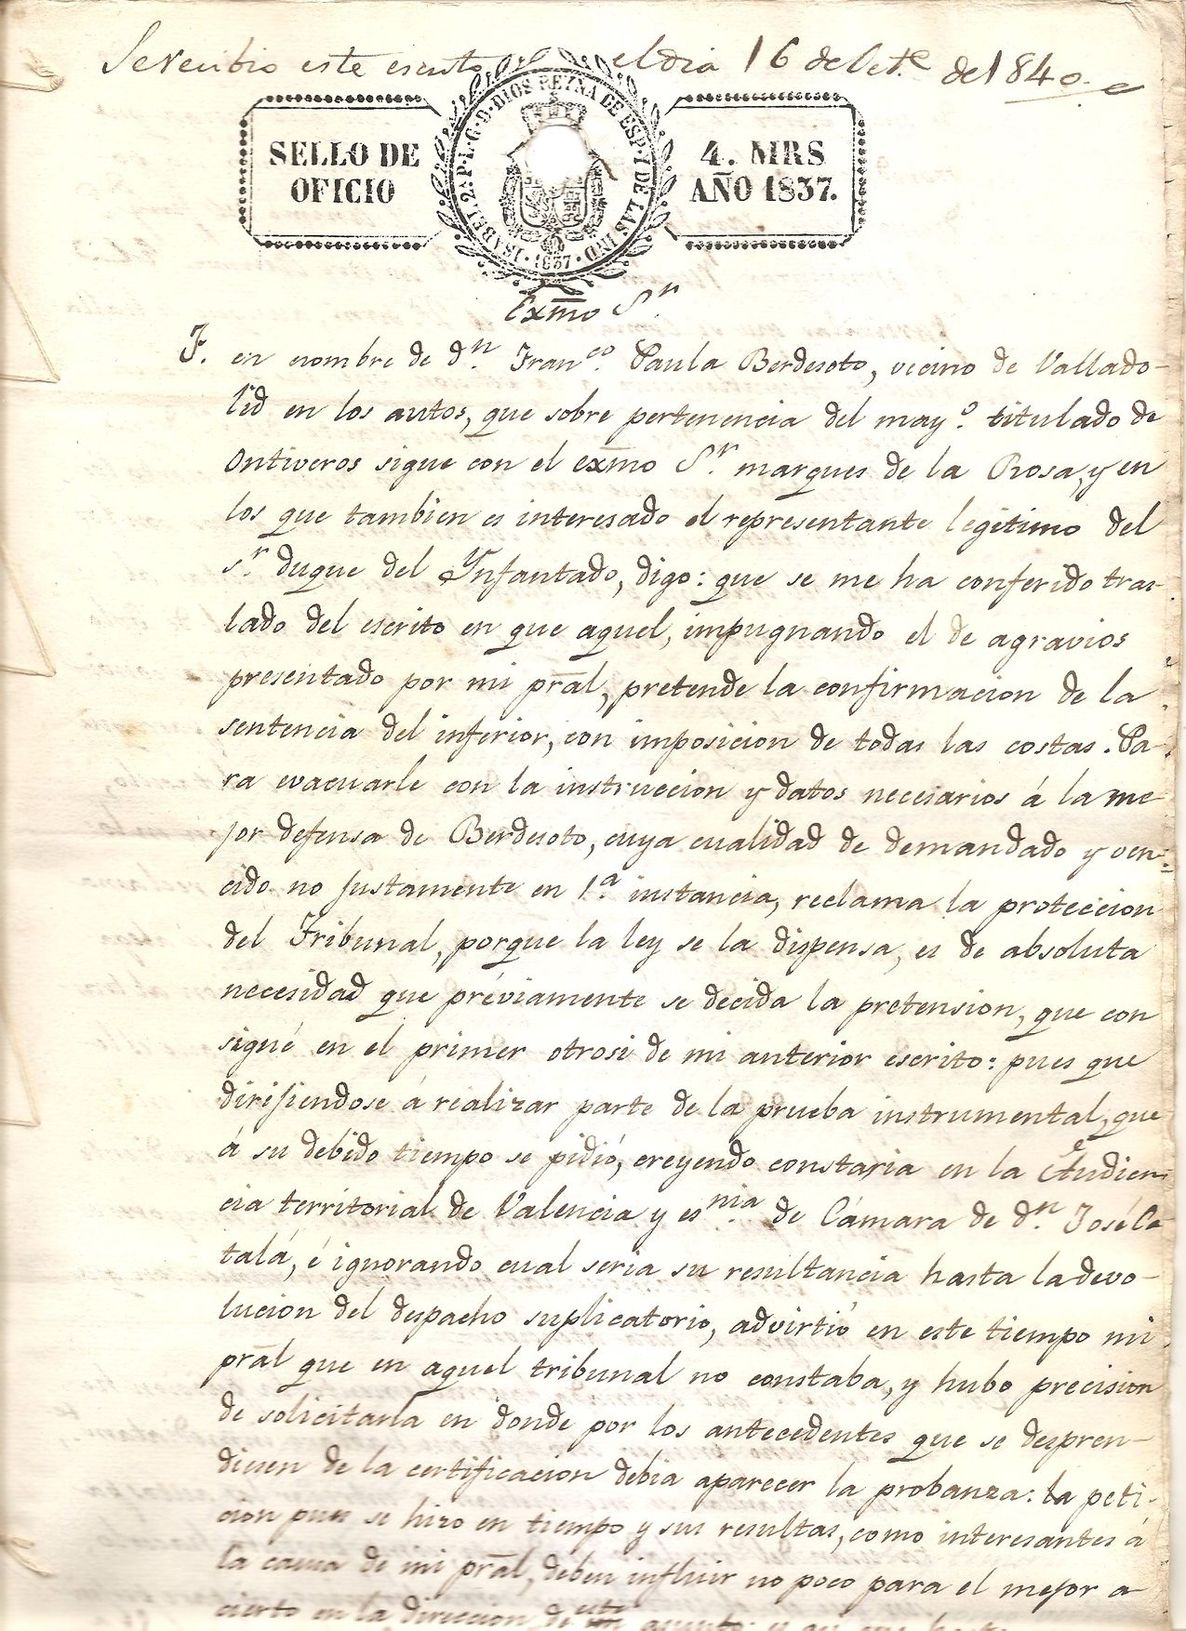 Se recibio este escrito el dia 16 de Oct.e de 1840
SELLO DE OFICIO
ISABEL 2.ª P. L. G. D. DIOS REYNA DE ESP. Y DE LAS IND.
1837
4. MRS
AÑO 1837.
Exmo S.r
F. en nombre de d.n Fran.co Paula Berdesoto, vecino de Vallado-
lid en los autos, que sobre pertenencia del may.o titulado de
Ontiveros sigue con el exmo S.r marques de la Rosa, y en
los que tambien es interesado el representante legitimo del
S.r duque del Ynfantado, digo: que se me ha conferido tras-
lado del escrito en que aquel, impugnando el de agravios
presentado por mi pral, pretende la confirmacion de la
sentencia del inferior, con imposicion de todas las costas. Pa-
ra evacuarle con la instruccion y datos necesarios á la me-
jor defensa de Berdesoto, cuya cualidad de demandado y ven-
cido no justamente en 1.a instancia, reclama la proteccion
del Tribunal, porque la ley se la dispensa, es de absoluta
necesidad que préviamente se decida la pretension, que con
signé en el primer otrosi de mi anterior escrito: pues que
dirijiendose á realizar parte de la prueba instrumental, que
á su debido tiempo se pidió, creyendo constaria en la Audien-
cia territorial de Valencia y es.nia de Cámara de d.n José Ca-
talá, é ignorando cual seria su resultancia hasta la devo-
lucion del despacho suplicatorio, advirtió en este tiempo mi
pral que en aquel tribunal no constaba, y hubo precision
de solicitarla en donde por los antecedentes que se despren-
diesen de la certificacion debia aparecer la probanza: la peti-
cion pues se hizo en tiempo y sus resultas, como interesantes á
la causa de mi pral, deben influir no poco para el mejor a-
cierto en la direccion de este asunto: y